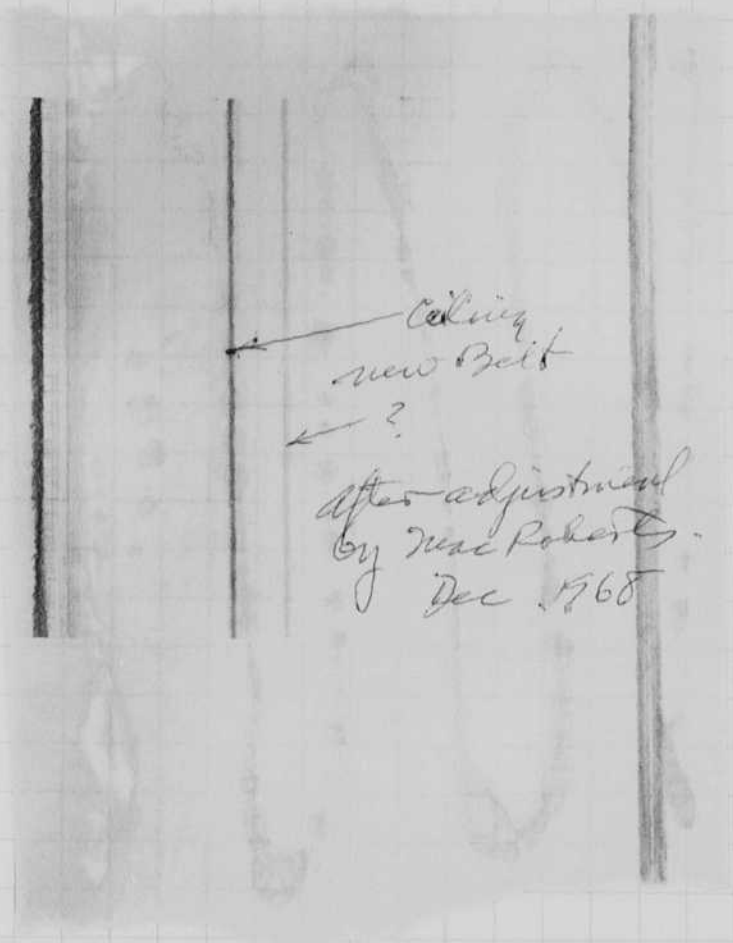 ceiling
new Belt
?
after adjustment
by Mac Roberts.
Dec 1968